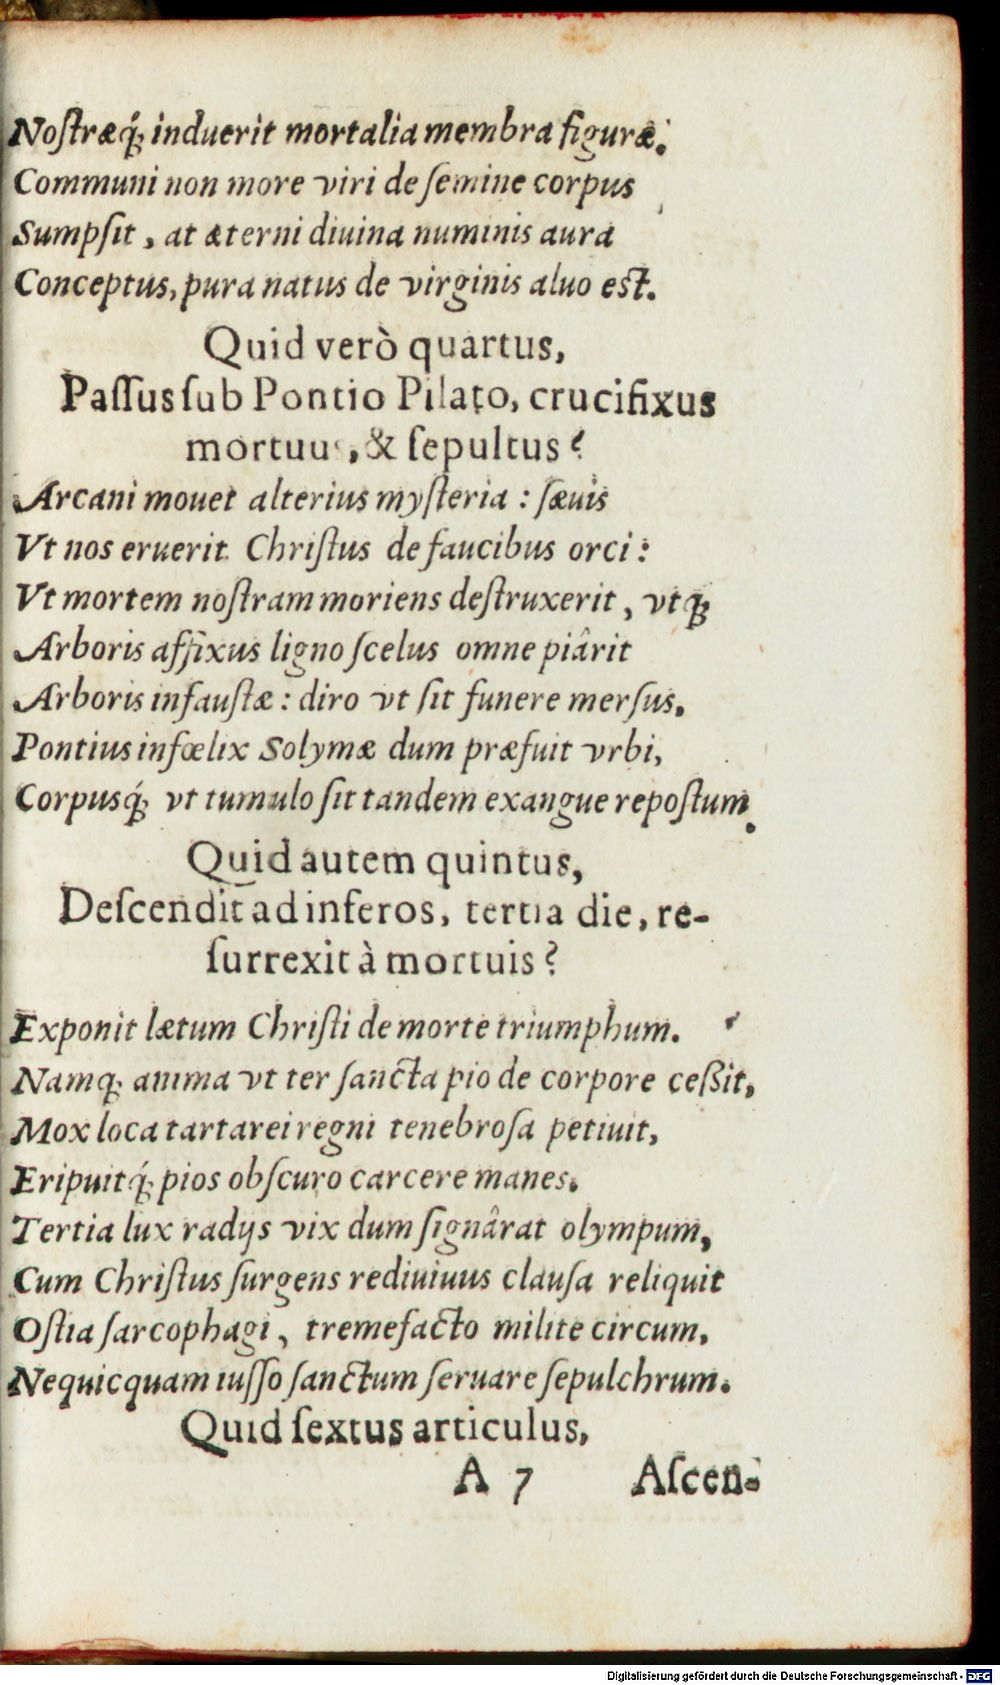 Noſtræq́; induerit mortalia membra figuræ.
Communi non more viri de ſemine corpus
Sumpſit, at æterni diuina numinis aura
Conceptus, pura natus de virginis aluo est.
Quid verò quartus,
Paſſus ſub Pontio Pilato, crucifixus
mortuus, & ſepultus?
Arcani mouet alterius myſteria: ſæuis
Vt nos eruerit Chriſtus de faucibus orci:
Vt mortem noſtram moriens deſtruxerit, vtq́;
Arboris affixus ligno ſcelus omne piârit
Arboris infauſtæ: diro vt ſit funere merſus,
Pontius infœlix Solymæ dum præfuit vrbi,
Corpusq́; vt tumulo ſit tandem exangue repoſtum.
Quid autem quintus,
Deſcendit ad inferos, tertia die, re-
ſurrexit à mortuis?
Exponit lætum Chriſti de morte triumphum.
Namq; anima vt ter ſancta pio de corpore ceßit,
Mox loca tartarei regni tenebroſa petiuit,
Eripuitq́; pios obſcuro carcere manes.
Tertia lux radijs vix dum ſignârat olympum,
Cum Chriſtus ſurgens rediuiuus clauſa reliquit
Oſtia ſarcophagi, tremefacto milite circum,
Nequicquam iuſſo ſanctum ſeruare ſepulchrum.
Quid ſextus articulus,
A 7 Aſcen-
Digitalisierung gefördert durch die Deutsche Forschungsgemeinschaft - DFG